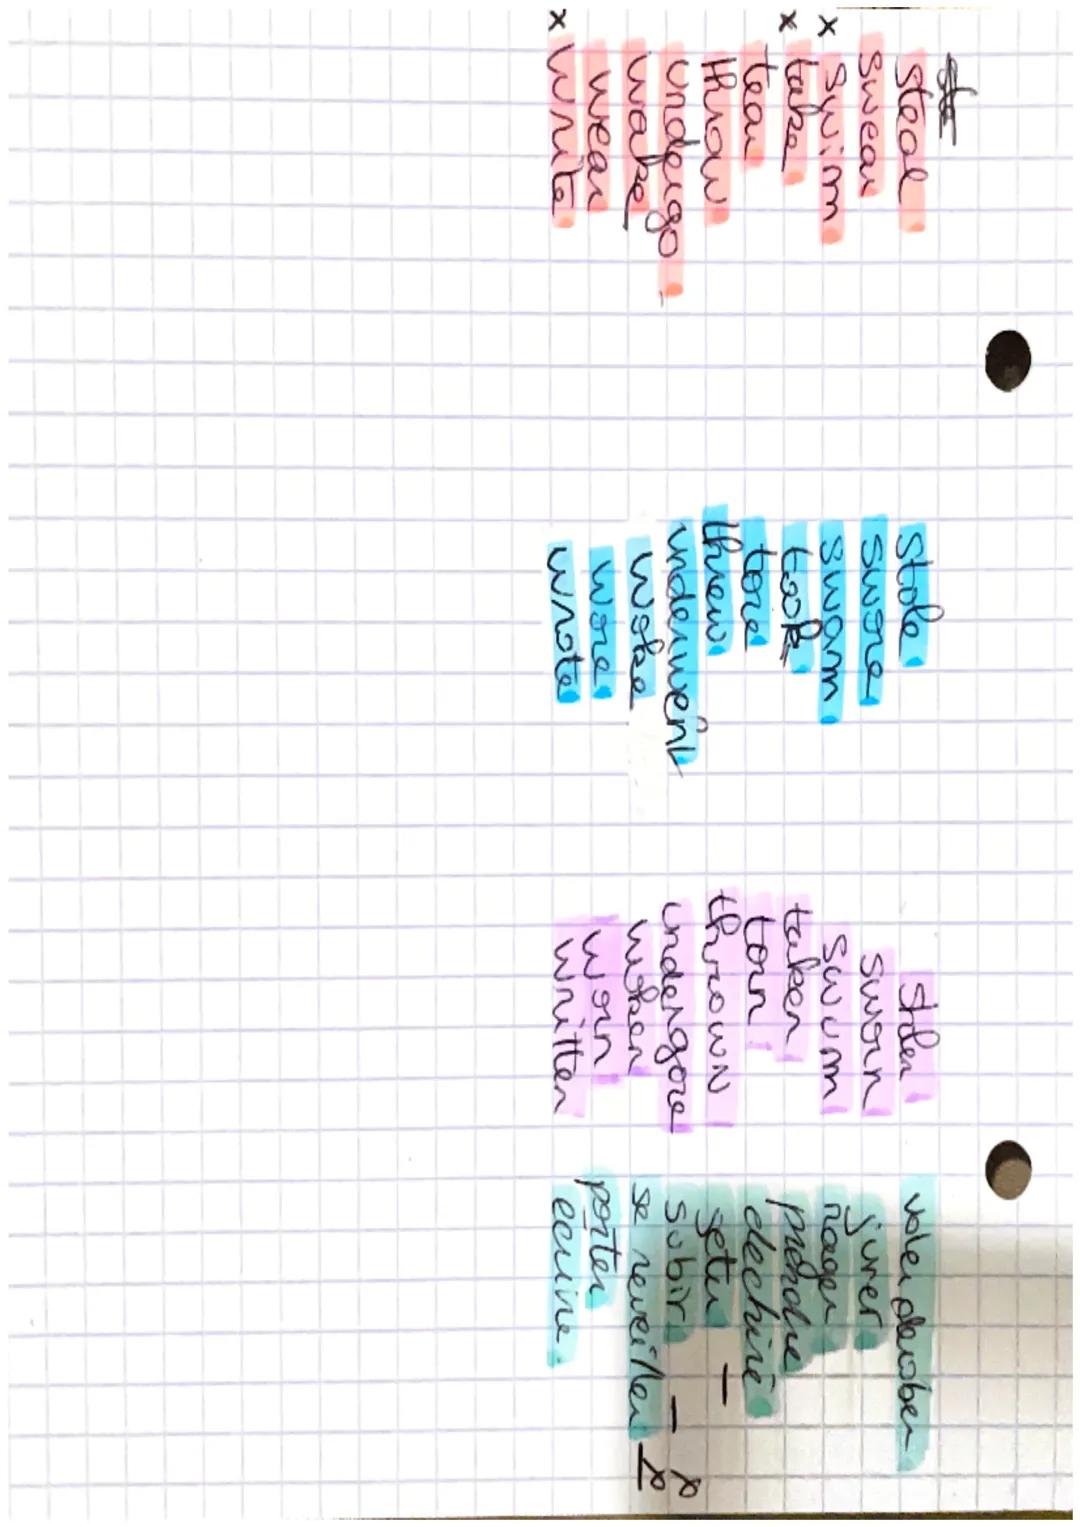 ste
steal stole stolen voler dérober
swear swore sworn jurer
x swim swam swum nager
x take took taken prendre
tear tore torn dechiré
throw threw thrown jeter –
undergo underwent undergone subir –
wake woke woken se reveiller –
wear wore worn porter
x write wrote written ecrire